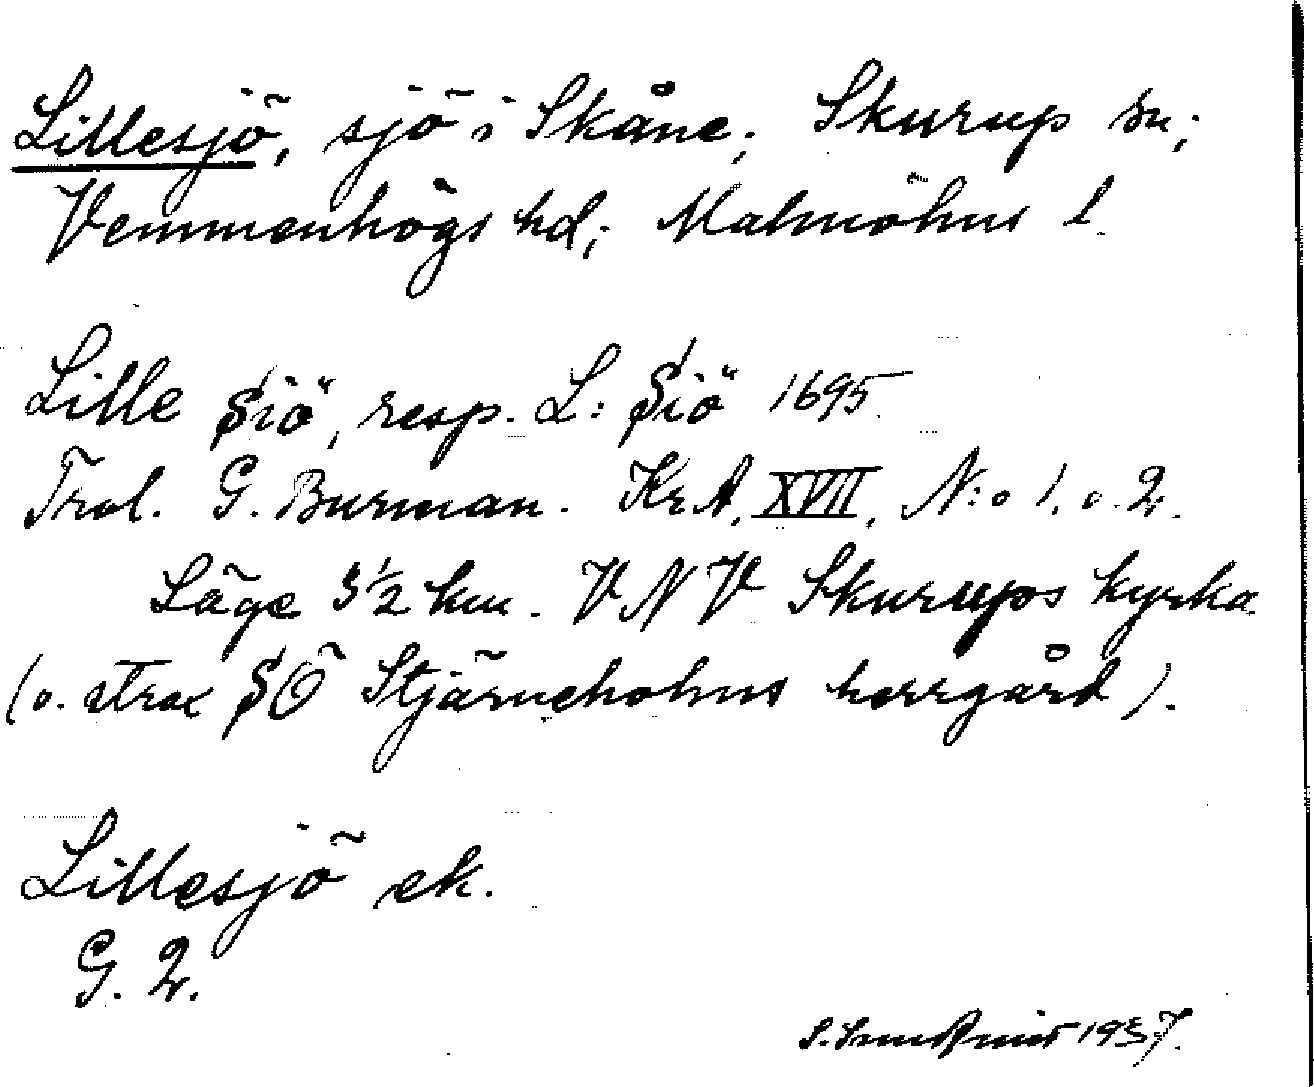 Lillesjö, sjö i Skåne; Skurup sn;
Vemmenhögs hd; Malmöhus l.
Lille Siö, resp. L: Siö 1695.
Trol. G. Burman. Kr.A. XVII, N:o 1. o. 2.
Läge 3½ km. VNV Skurups kyrka
(o. strax SÖ Stjärneholms herrgård).
Lillesjö ek.
G. 2.
S. 1937.